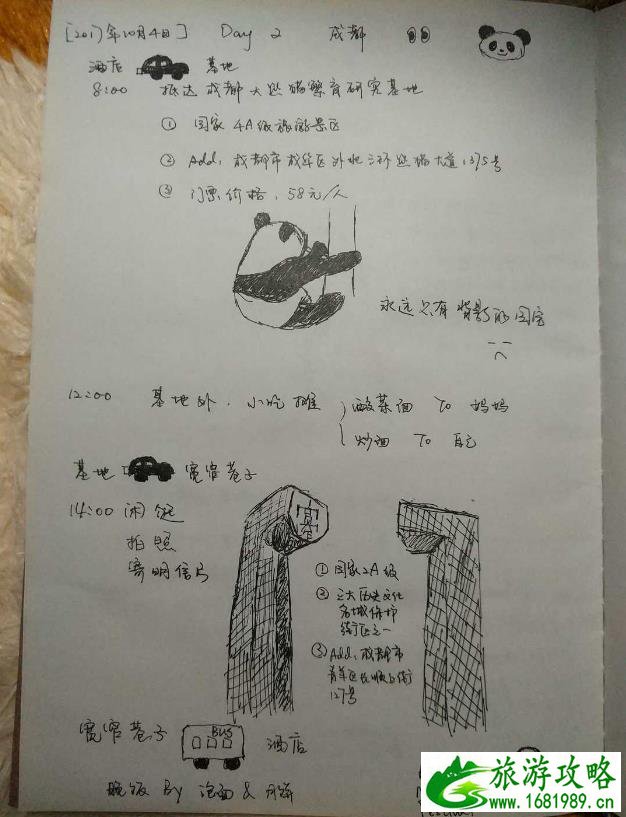 [2017年10月4日] Day 2 成都
酒店 基地
8:00 抵达成都大熊猫繁育研究基地
① 国家4A级旅游景区
② Add: 成都市成华区外北三环熊猫大道1375号
③ 门票价格: 58元/人
永远只有背影的国宝
12:00 基地外, 小吃摊 酸菜面 To 妈妈
炒面 To 自己
基地 宽窄巷子
14:00 闲逛
拍照
寄明信片
① 国家2A级
② 三大历史文化
名城保护
街区之一
③ Add: 成都市
青羊区长顺上街
127号
宽窄巷子 BUS 酒店
晚饭 By 泡面 & 月饼
旅游攻略
www.1681989.cn